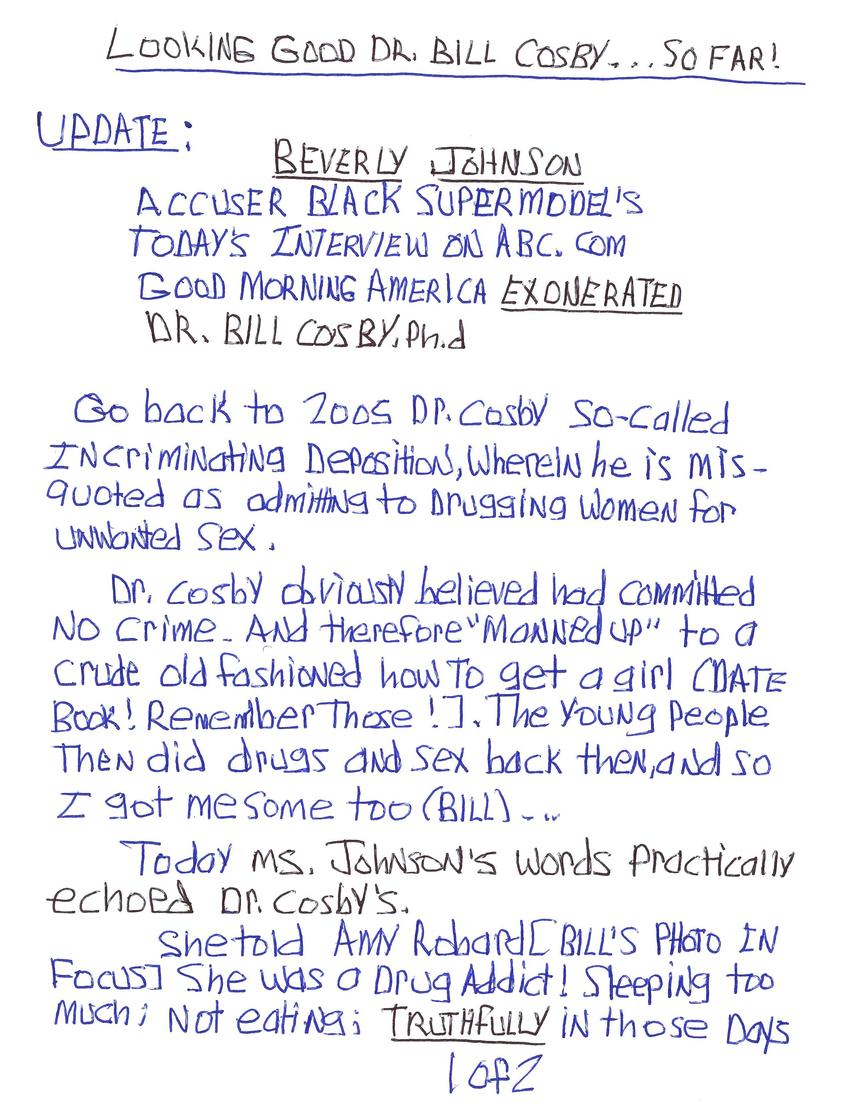 LOOKING GOOD DR. BILL COSBY....SO FAR!
UPDATE:
BEVERLY JOHNSON
ACCUSER BLACK SUPERMODEL'S
TODAY'S INTERVIEW ON ABC.COM
GOOD MORNING AMERICA EXONERATED
DR. BILL COSBY, Ph.d
Go back to 2005 DR. Cosby SO-Called
INCriminating Deposition, Wherein he is mis-
quoted as admitting to Drugging Women for
unwanted sex.
Dr. Cosby obviously believed had committed
NO Crime. And therefore "MANNed UP" to a
crude old fashioned how To get a girl (DATE
Book! Remember Those!]. The Young People
Then did drugs and sex back then, and so
I got me some too (BILL)...
Today Ms. Johnson's words Practically
echoed Dr. Cosby's.
She told Amy Robard [BILL'S PHOTO IN
Focus] She was a Drug Addict! Sleeping too
much; Not eating; TRUTHFULLY in those Days
1 of 2